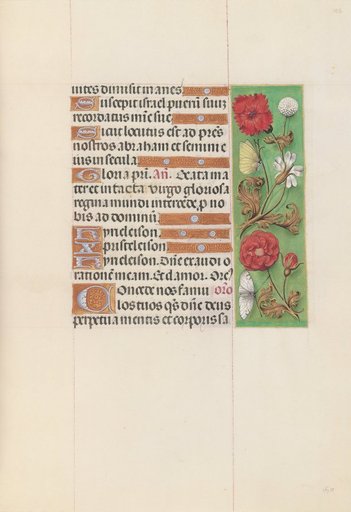 uites dimisit inanes
Suscepit israel pueru suu
recordatus mie sue
Sicut locutus est ad pres
nostros abraham et semini e
ius in secula
Gloria pri. an. Beata ma
ter et intacta virgo gloriosa
regina mundi intercede p no
bis ad dominu
Kyrieleison
Xpisteleison
Kyrieleison. Dne exaudi o
ratione meam. Et clamor. oro
Concede nos famu
los tuos qs dne deus
perpetua mentis et corporis sa